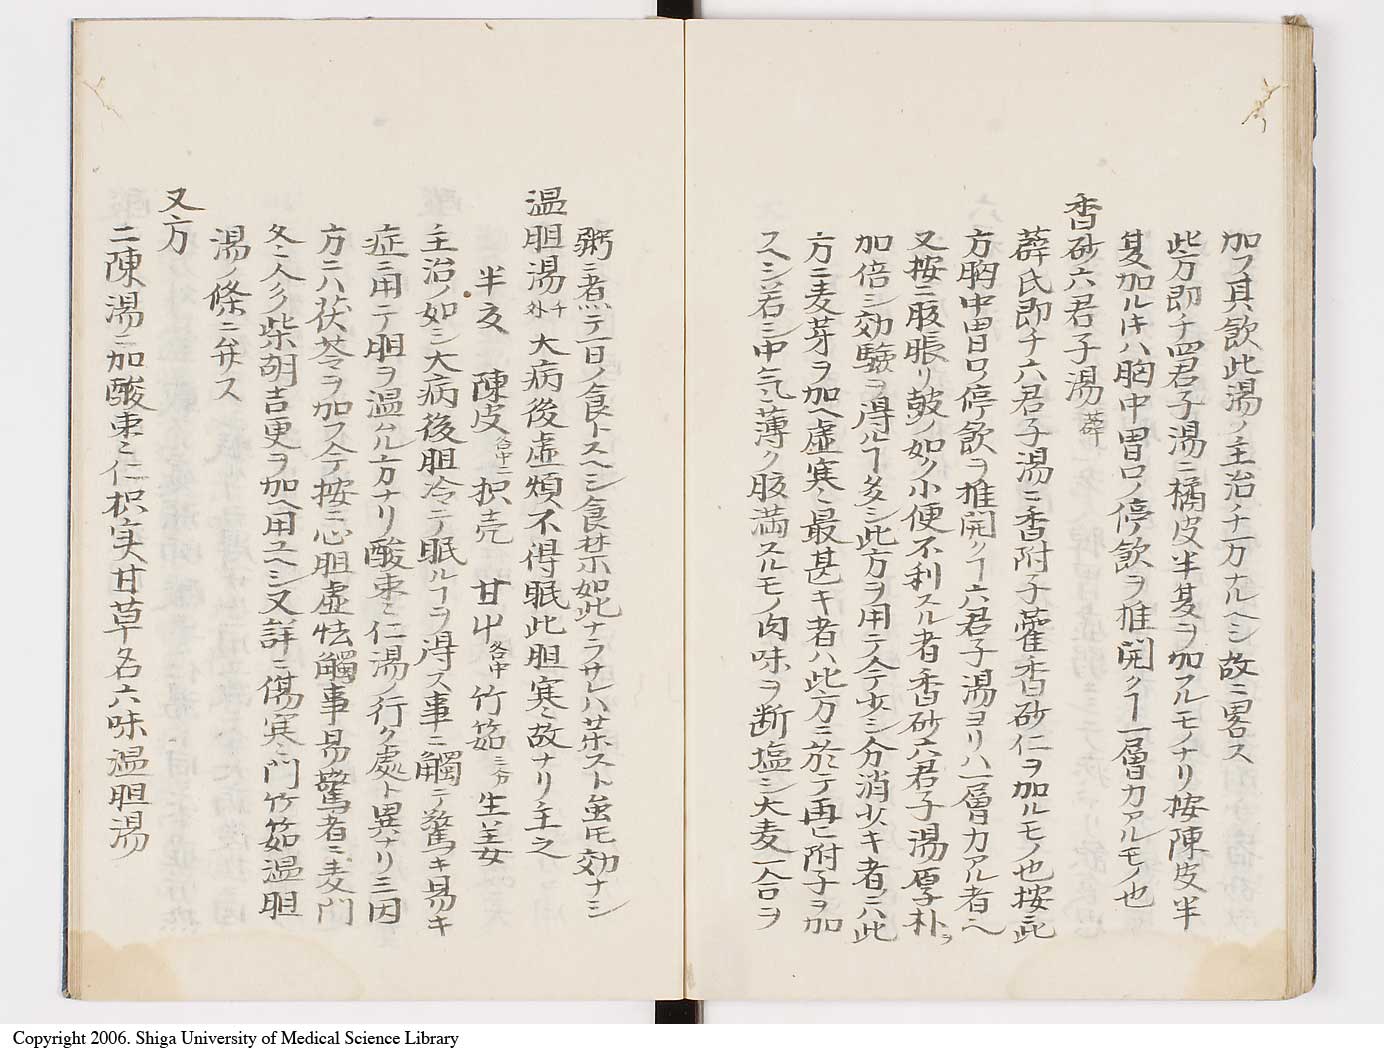 加フ其飲此湯ノ主治ノ十一万ナルヘシ故ニ畧ス
此方即チ四君子湯ニ橘皮半夏ヲ加フルモノナリ按陳皮半
夏加ルキハ胸中胃口ノ停飲ヲ推開クヿ一層力アルモノ也
香砂六君子湯 薜
薜氏即チ六君子湯ニ香附子藿香砂仁ヲ加ルモノ也按ニ此
方胸中胃口ノ停飲ヲ推開クヿ六君子湯ヨリハ一層力アル者ヘ
又按ニ腹脹リ皷ノ如ク小便不利スル者香砂六君子湯厚朴ヲ
加倍シ効驗ヲ得ルヿ多シ此方ヲ用テ今少シ分消少キ者ニハ此
方ニ麦芽ヲ加ヘ虚寒ノ最甚キ者ハ此方ニ於テ再ヒ附子ヲ加
ス シ若シ中気薄ク腹満スルモノ肉味ヲ断塩シ大麦一合ヲ
粥ニ煮テ一日ノ食トスヘシ食禁如此ナラサレハ薬スト虽モ効ナシ
温胆湯 千外 大病後虚煩不得眠此胆寒故ナリ主之
半夏 陳皮 各中二 枳壳 甘艸 各中 竹筎 三分 生姜
主治ノ如シ大病後胆冷テ眠ルヿヲ得ス事ニ觸テ驚キ易キ
症ニ用テ胆ヲ温ムル方ナリ酸棗仁湯ノ行ク處ト異ナリ三因
方ニハ茯苓ヲ加フ今按ニ心胆虚怯觸事易驚者ニ麦門
冬人参柴胡吉更ヲ加ヘ用ユヘシ又詳ニ傷寒門竹筎温胆
湯ノ條ニ弁ス
又方
二陳湯ニ加酸棗仁枳実甘草名六味温胆湯
Copyright 2006. Shiga University of Medical Science Library